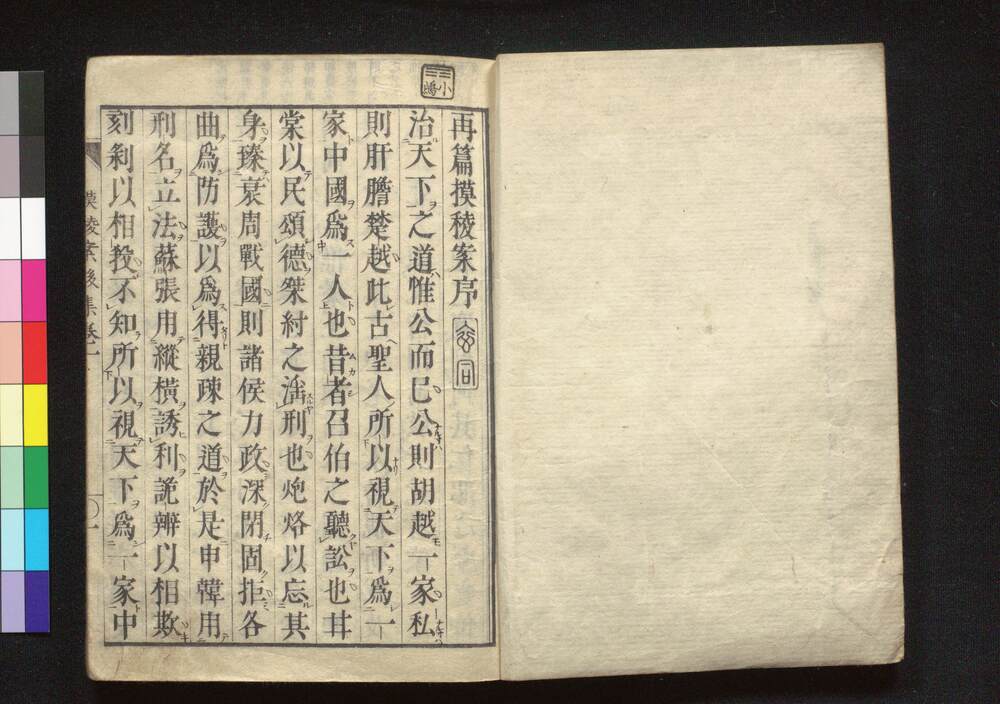 再篇摸稜案序
治天下之道惟公而已公則胡越一家私
則肝膽楚越此古聖人所以視天下爲一
家中國爲一人也昔者召伯之聽訟也甘
棠以民頌德桀紂之淫刑也炮烙以忘其
身臻衰周戰國則諸侯力政深閉固拒各
曲爲防護以爲得親疎之道於是申韓用
刑名立法蘇張用縱橫誘利詭辨以相欺
刻剝以相殺不知所以視天下爲一家中
摸稜案後集卷一
〇一
小嶋